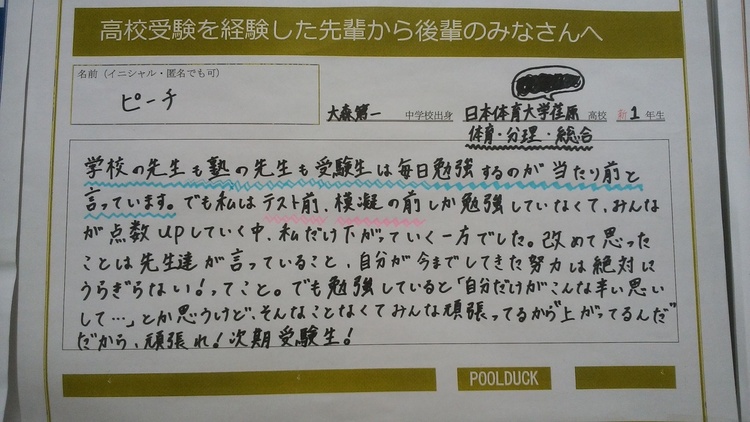 高校受験を経験した先輩から後輩のみなさんへ
名前（イニシャル・匿名でも可）
ピーチ
大森第一 中学校出身 日本体育大学荏原 高校 新1年生
体育・分理・総合
学校の先生も塾の先生も受験生は毎日勉強するのが当たり前と
言っています。でも私はテスト前、模擬の前しか勉強していなくて、みんな
が点数upしていく中、私だけ下がっていく一方でした。改めて思った
ことは先生達が言っていること、自分が今までしてきた努力は絶対に
うらぎらない！ってこと。でも勉強していると「自分だけがこんな辛い思い
して…」とか思うけど、そんなことなくてみんな頑張ってるから"上がってるんだ"
だから、頑張れ！次期受験生！
POOLDUCK